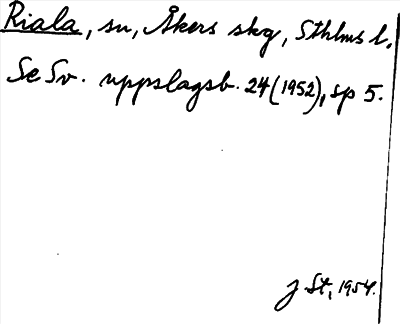 Riala, sn, Åkers skg, Sthlms l.
Se Sv. uppslagsb. 24 (1952), sp 5.
J St, 1954.